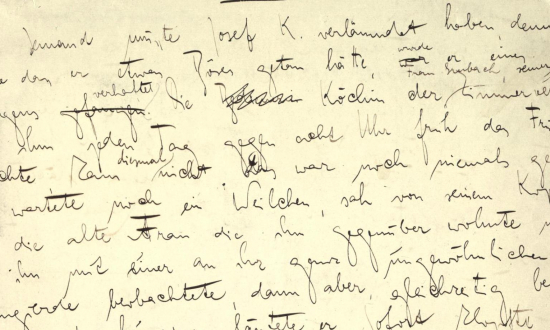 Jemand musste Josef K. verläumdet haben, denn
dass er etwas Böses getan hätte, wurde er eines
gens verhaftet gefangen. Die Köchin der Frau Grubach, seiner Zimmerver
ihm jeden Tag gegen acht Uhr früh das Frü
chte kam diesmal nicht. Das war noch niemals ge
wartete noch ein Weilchen, sah von seinem Kop
die alte Frau die ihm gegenüber wohnte u
ihn mit einer an ihr ganz ungewöhnlichen
beobachtete, dann aber, gleichzeitig be
läutete er sofort klopfte